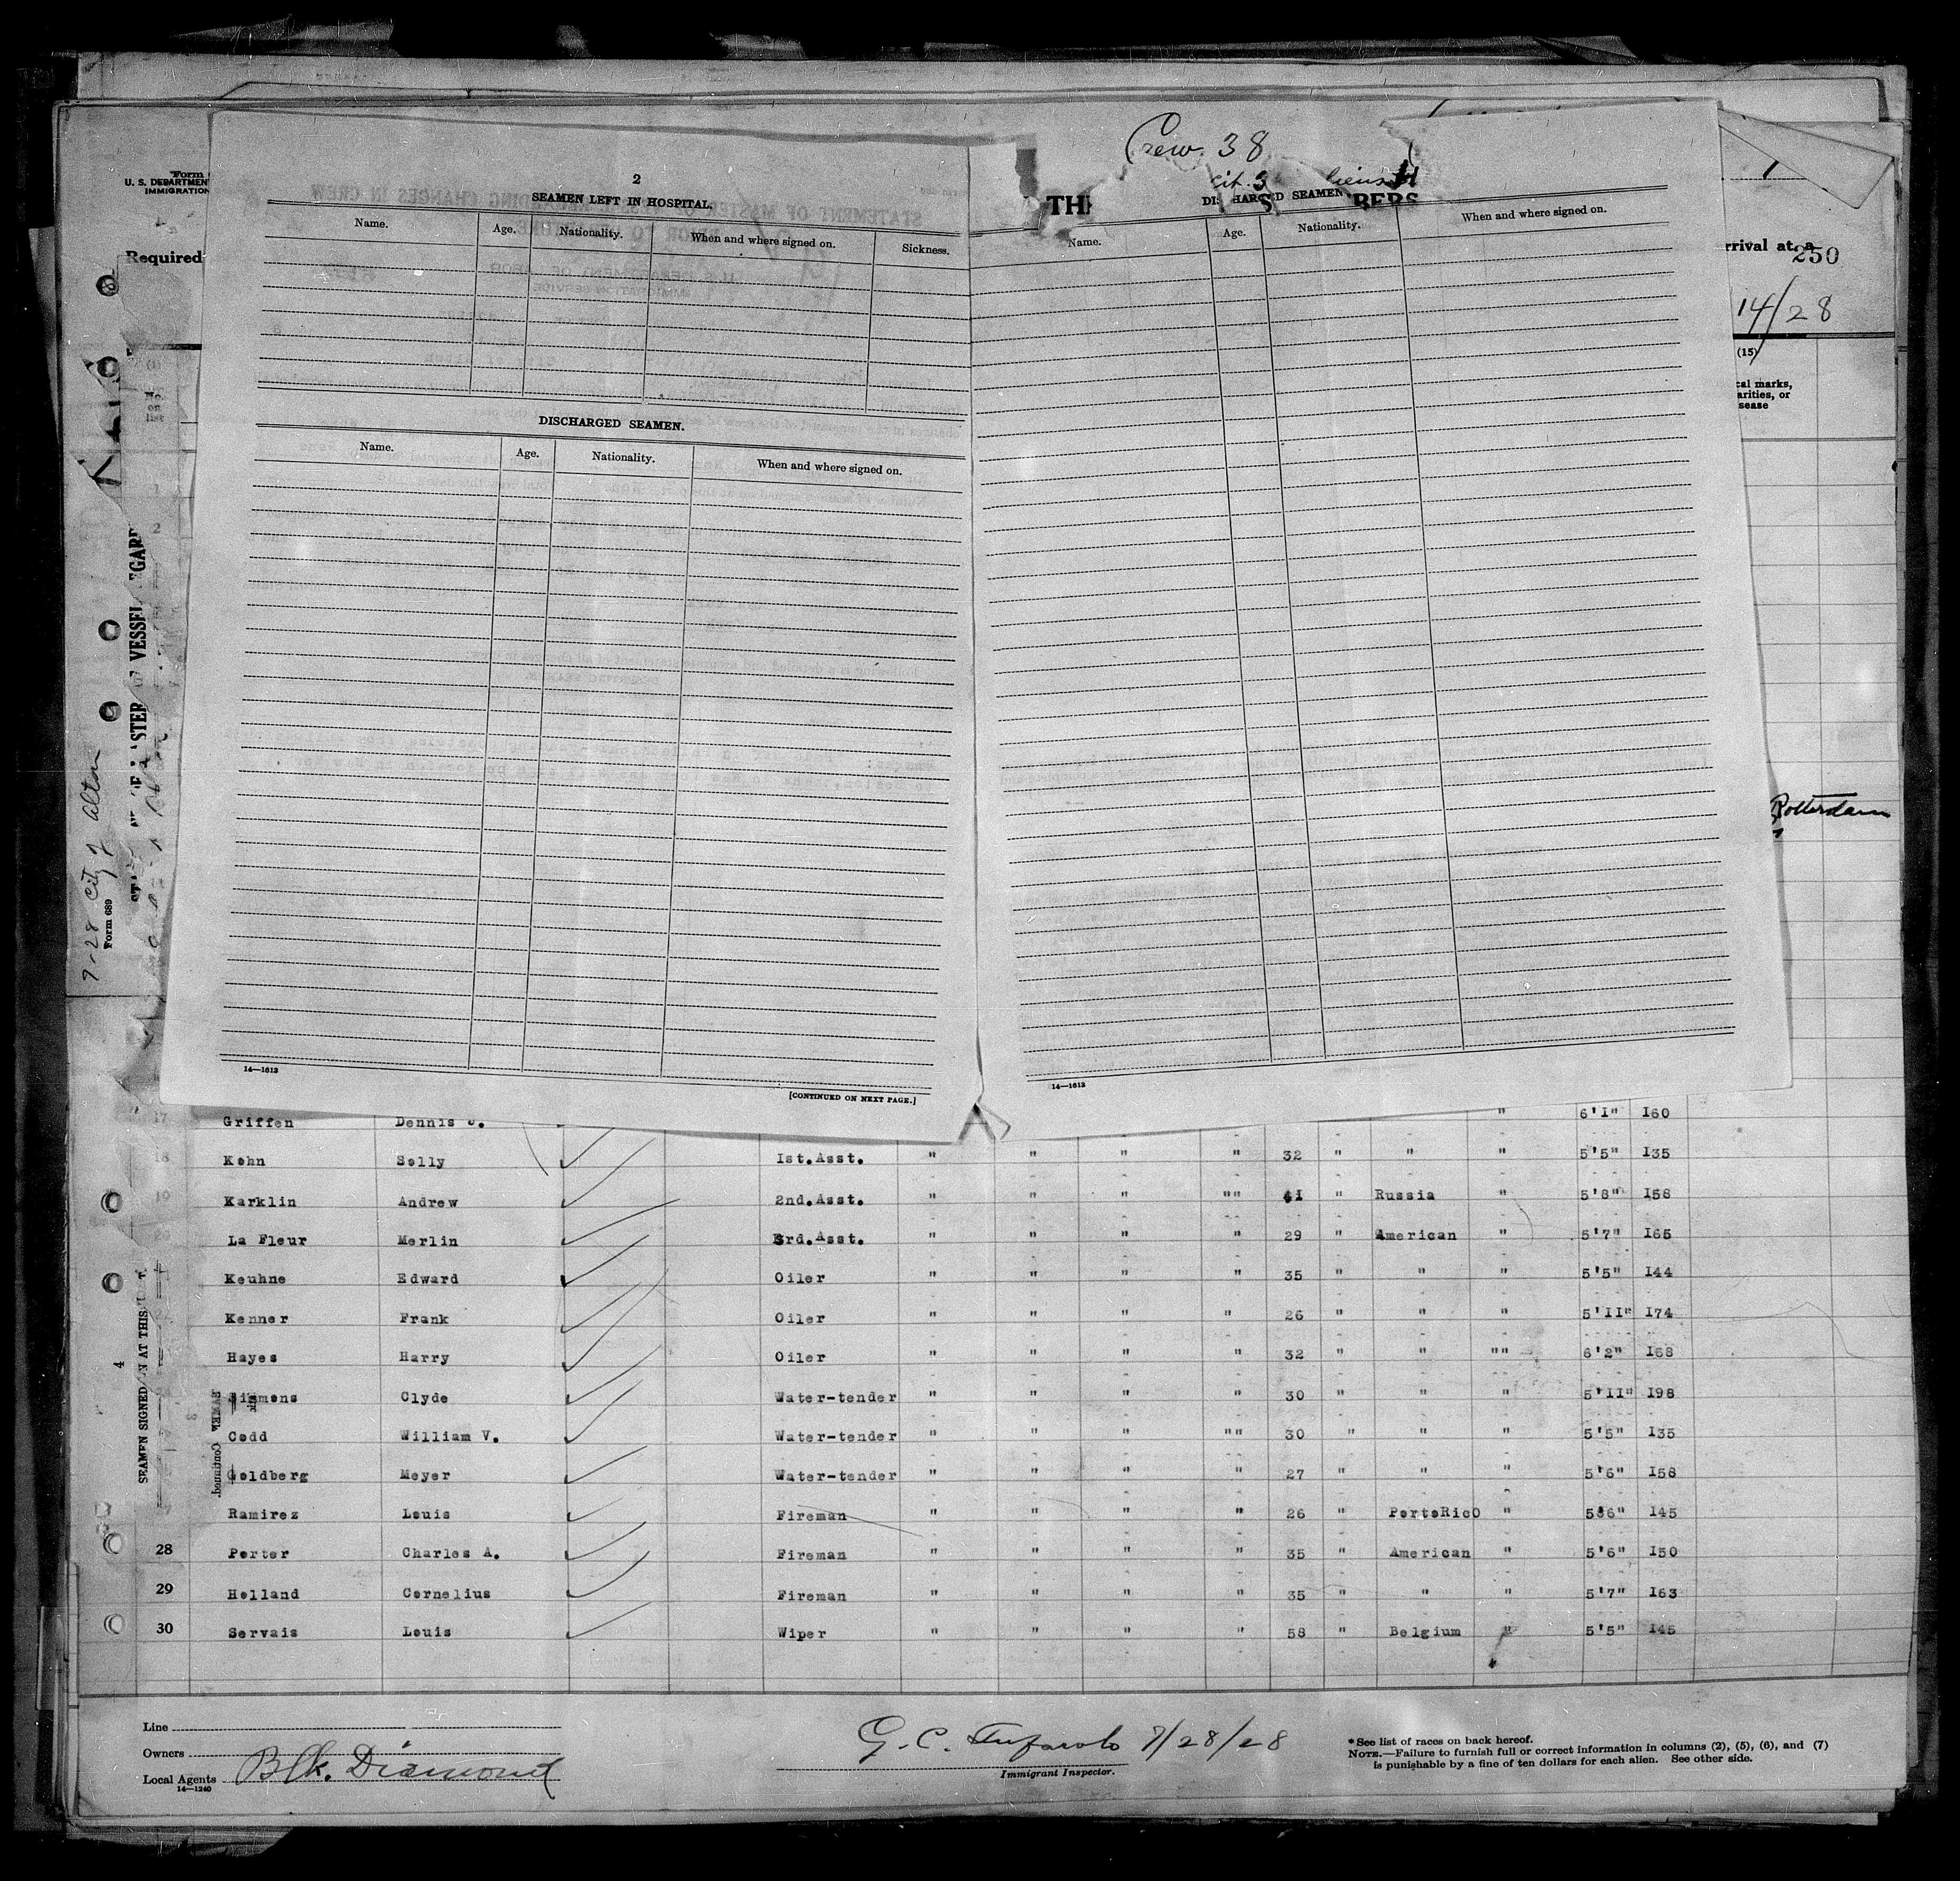 Crew. 38
Form
U. S. DEPARTMENT
IMMIGRATION
2
SEAMEN LEFT IN HOSPITAL.
Name. Age. Nationality. When and where signed on. Sickness.
DISCHARGED SEAMEN.
Name. Age. Nationality. When and where signed on.
14—1613
[CONTINUED ON NEXT PAGE.]
cit. 3
Name. Age. Nationality. When and where signed on.
14—1613
Required
rrival at a
250
14/28
(15)
cal marks,
arities, or
sease
No.
on
list
1
2
Rotterdam
7-28 City of Alton
Form 689
4
SEAMEN SIGNED ON AT THIS
17 Griffen Dennis J. " 6'I" I60
18 Kohn Solly Ist.Asst. " " " " 32 " " " 5'5" I35
19 Karklin Andrew 2nd.Asst. " " " "" 41 " Russia " 5'8" I58
20 La Fleur Merlin 3rd.Asst. " " " " 29 " American " 5'7" I65
Keuhne Edward Oiler " " " " 35 " " " 5'5" I44
Kenner Frank Oiler " " " " 26 " " " 5'II" I74
Hayes Harry Oiler " " " " 32 " " "" 6'2" I68
Simmons Clyde Water-tender " " " " 30 " " " 5'II" I98
Codd William V. Water-tender " " " "" 30 " " " 5'5" I35
Goldberg Meyer Water-tender " " " " 27 " " " 5'6" I58
Ramirez Louis Fireman " " " " 26 " PortoRico " 586" I45
28 Porter Charles A. Fireman " " " " 35 " American " 5'6" I50
29 Holland Cornelius Fireman " " " " 35 " " " 5'7" I63
30 Servais Louis Wiper " " " " 58 " Belgium " 5'5" I45
Line
Owners
Local Agents Blk. Diamond
14—1240
G. C. 7/28/28
Immigrant Inspector.
*See list of races on back hereof.
NOTE.—Failure to furnish full or correct information in columns (2), (5), (6), and (7)
is punishable by a fine of ten dollars for each alien. See other side.